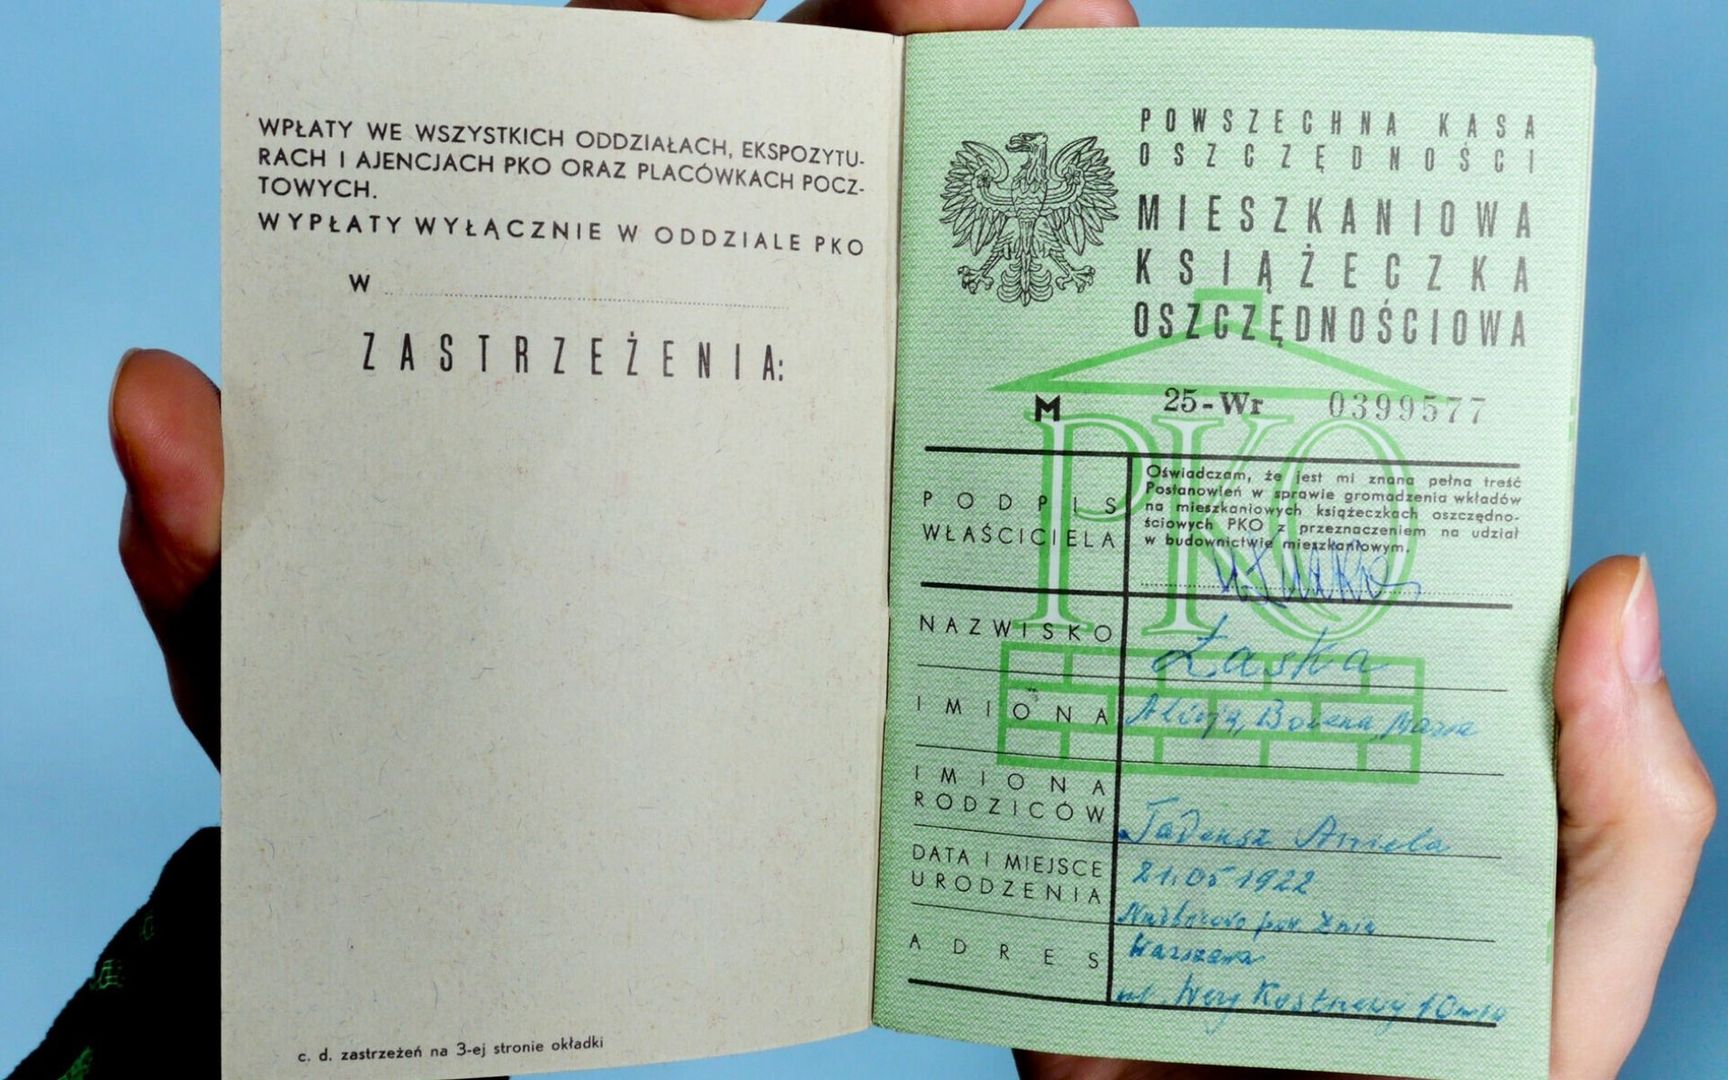 WPŁATY WE WSZYSTKICH ODDZIAŁACH, EKSPOZYTU-
RACH I AJENCJACH PKO ORAZ PLACÓWKACH POCZ-
TOWYCH.
WYPŁATY WYŁĄCZNIE W ODDZIALE PKO
W
ZASTRZEŻENIA:
c. d. zastrzeżeń na 3-ej stronie okładki
POWSZECHNA KASA
OSZCZĘDNOŚCI
MIESZKANIOWA
KSIĄŻECZKA
OSZCZĘDNOŚCIOWA
M 25-Wr 0399577
PKO
PODPIS
WŁAŚCICIELA
Oświadczam, że jest mi znana pełna treść
Postanowień w sprawie gromadzenia wkładów
na mieszkaniowych książeczkach oszczędno-
ściowych PKO z przeznaczeniem na udział
w budownictwie mieszkaniowym.
NAZWISKO Łaska
IMIONA Alicja, Bożena,
IMIONA
RODZICÓW
Tadeusz Aniela
DATA I MIEJSCE
URODZENIA
21.05 1922
pow. Żnin
ADRES
Warszawa
ul. Wery Kostrzewy